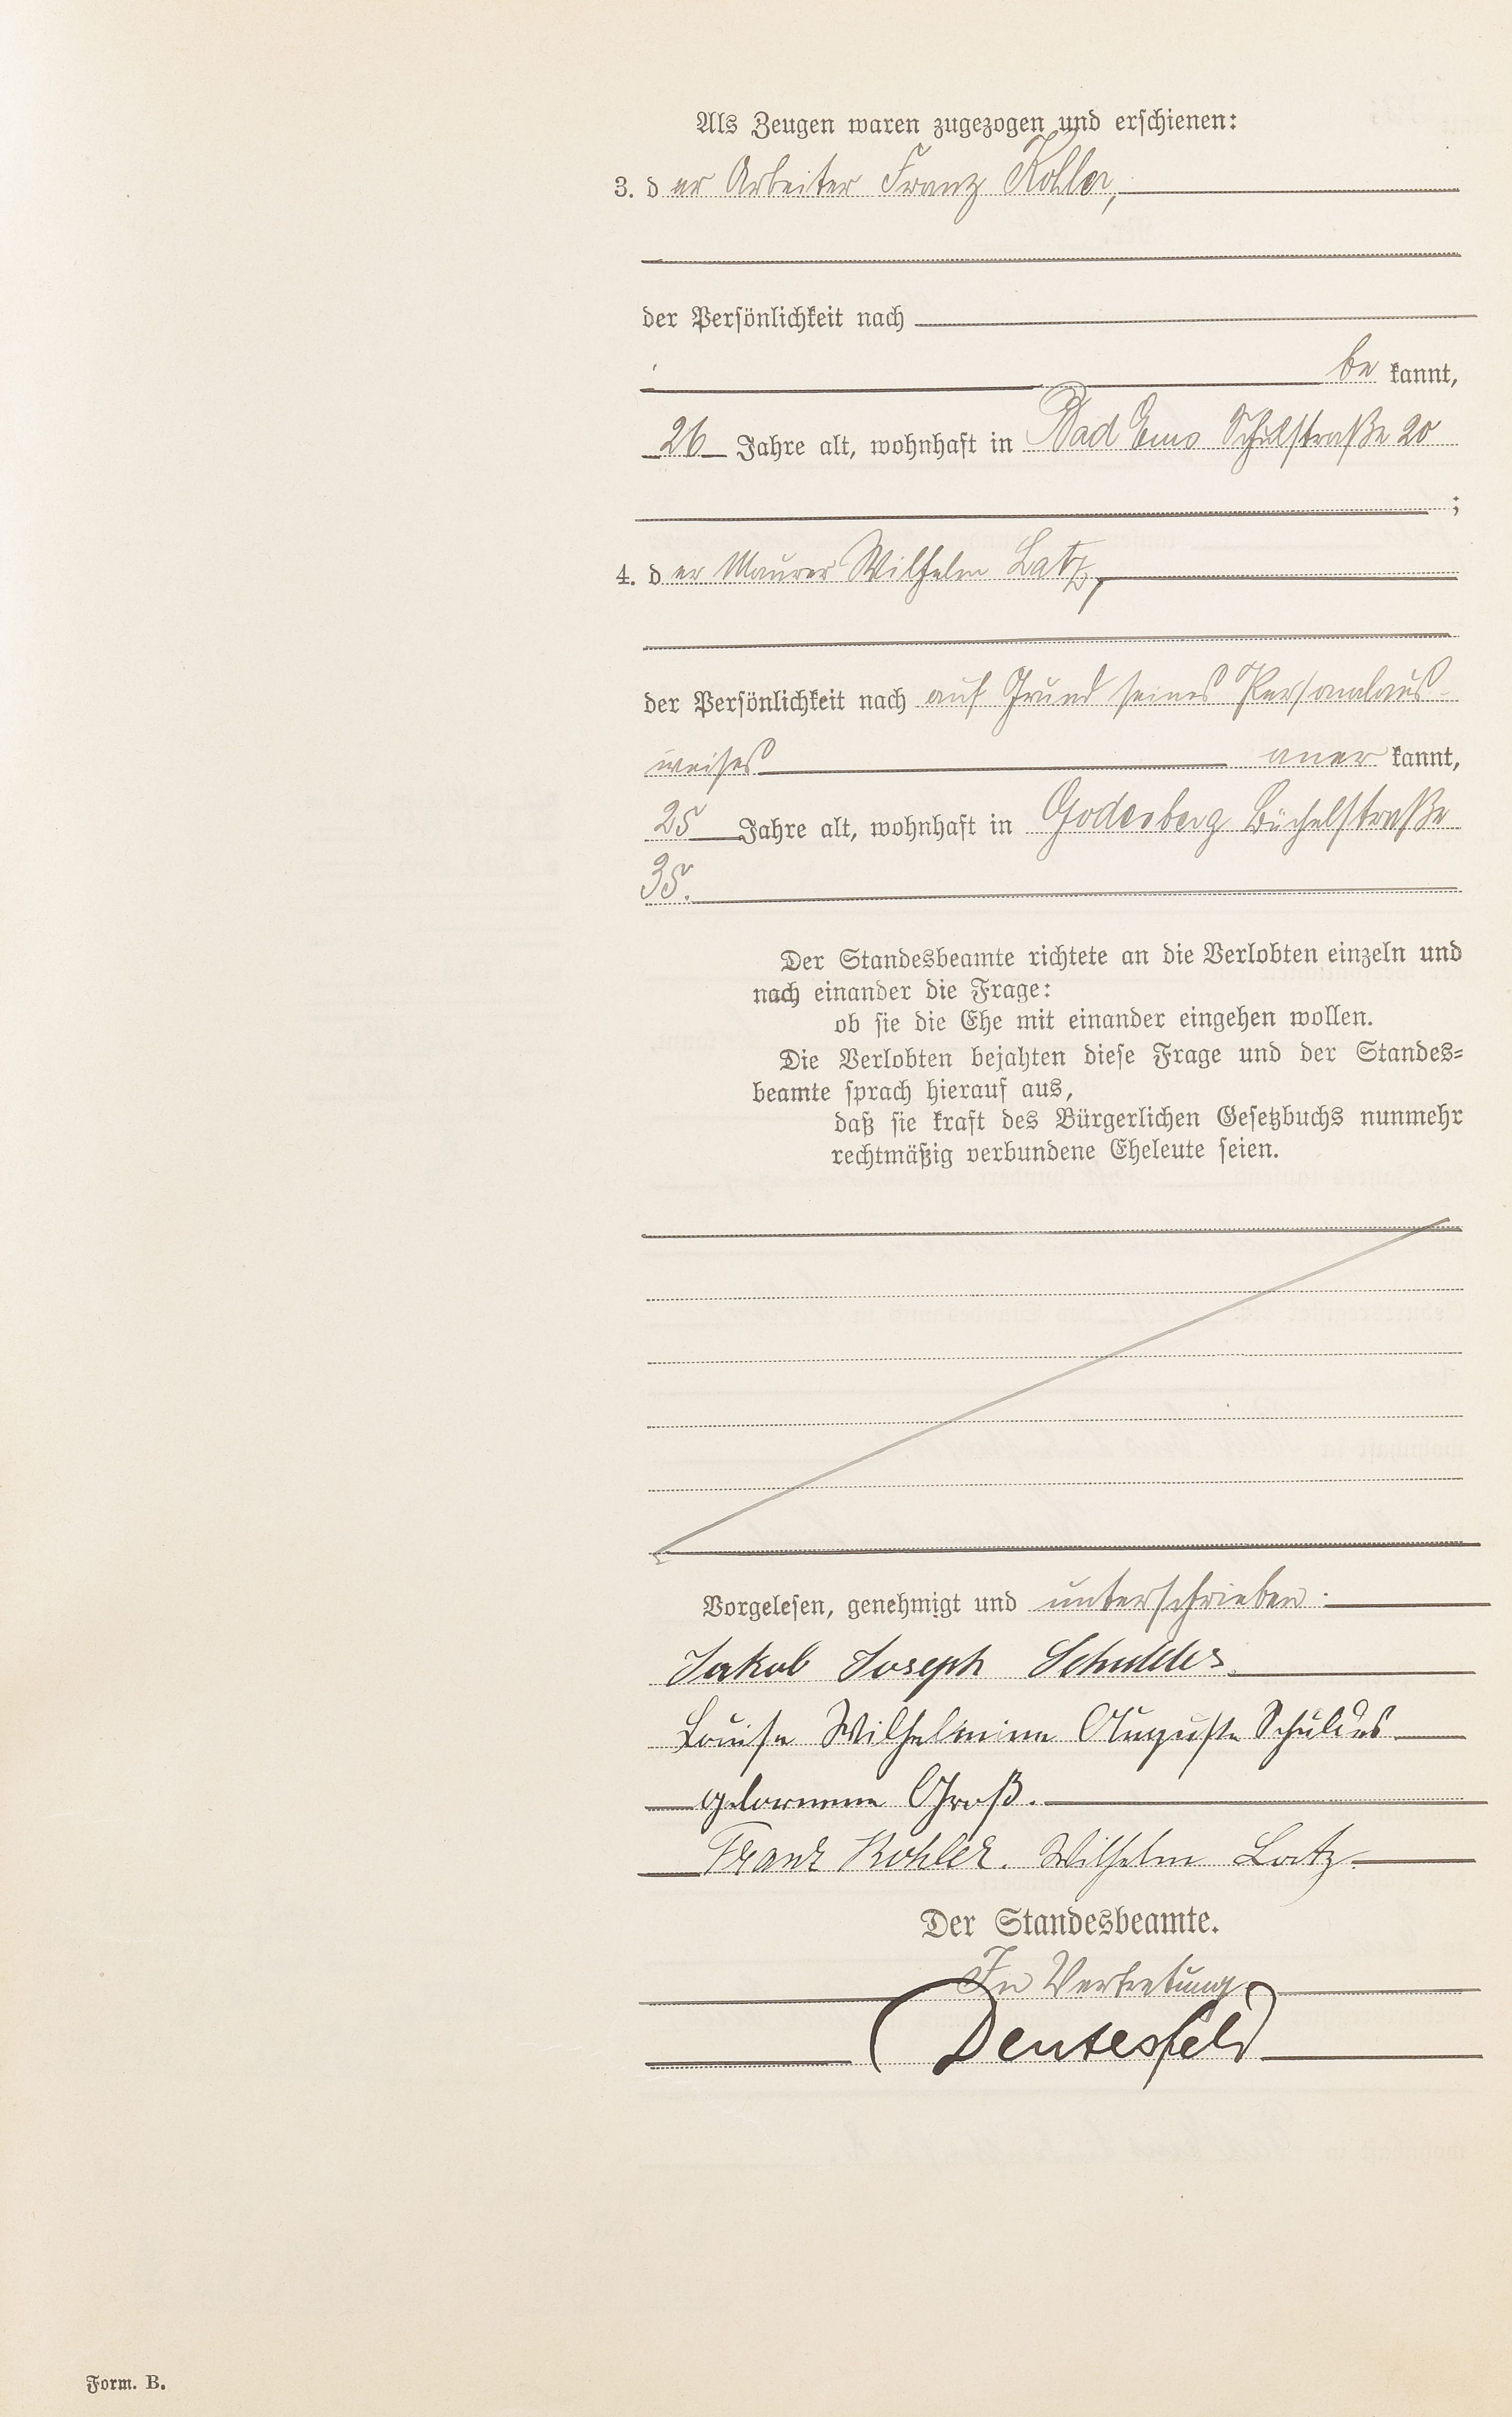 Als Zeugen waren zugezogen und erschienen:
3. der Arbeiter Franz Kohler,
der Persönlichkeit nach
be kannt,
26 Jahre alt, wohnhaft in Bad Ems Schulstraße 20
;
4. der Maurer Wilhelm Latz,
der Persönlichkeit nach auf Grund seines Personalaus-
weises aner kannt,
25 Jahre alt, wohnhaft in Godesberg Büchelstraße
35.
Der Standesbeamte richtete an die Verlobten einzeln und
nach einander die Frage:
ob sie die Ehe mit einander eingehen wollen.
Die Verlobten bejahten diese Frage und der Standes-
beamte sprach hierauf aus,
daß sie kraft des Bürgerlichen Gesetzbuchs nunmehr
rechtmäßig verbundene Eheleute seien.
Vorgelesen, genehmigt und unterschrieben.
Jakob Joseph Schuldes
Louise Wilhelmine Auguste Schuldes
geborenene Groß.
Franz Kohler. Wilhelm Latz.
Der Standesbeamte.
In Vertretung
Form. B.